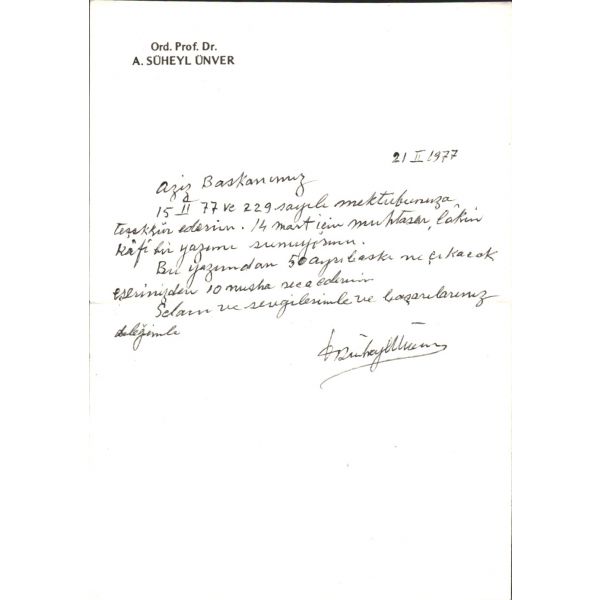 Ord. Prof. Dr.
A. SÜHEYL ÜNVER
21 II 1977
Aziz Başkanımız
15 II 77 ve 229 sayılı mektubunuza
teşekkür ederim. 14 mart için muhtasar, lâkin
kâfi bir yazımı sunuyorum.
Bu yazımdan 50 ayrı baskı ve çıkacak
eserinizden 10 nusha rica ederim
Selam ve sevgilerimle ve başarılarınız
dileğimle
A Süheyl Ünver